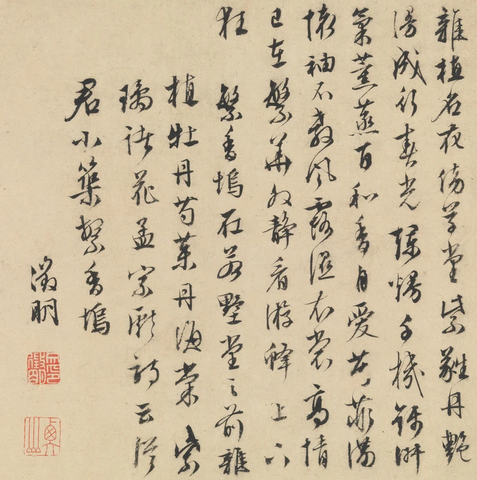 雜植名花傍草堂紫蕤丹艷
漫成行春光爛熳千機錦淑
氣熏蒸百和香自愛芳菲滿
懷袖不教風露濕衣裳高情
已在繁華外靜看游蜂上下
狂
繁香塢在若墅堂之前雜
植牡丹芍藥丹海棠紫
璚諸花孟宗獻詩云從
君小築繁香塢
徵明